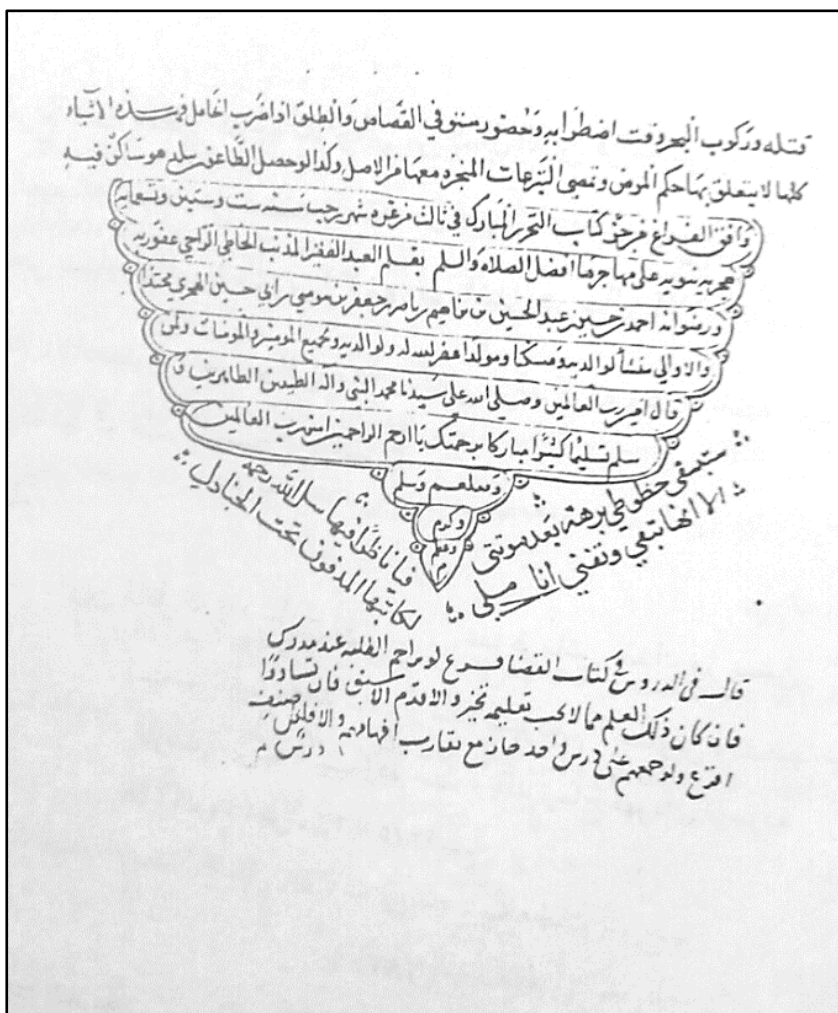 قتله وركوب البحر وقت اضطرابه وحضور مننو في القصاص والطلق اذا ضرب الحامل فهذه الاشياء
كلها لا يتعلق بها حكم المرض وتمضي التبرعات المنجزه معها من الاصل وكذا لو حصل الطاعون ببلد هو ساكن فيه
وافق الفراغ من كتاب التحرير المبارك في ثالث من غره شهر رجب سنة ست وستين وتسعمايه
هجريه نبويه على مهاجرها افضل الصلاه والسلم بقلم العبد الفقير المذنب الخاطي الراجي عفو ربه
ورضوانه احمد بن حسين بن عبد الحسين بن ناصر بن جعفر بن موسى بن ابي حسين الهجري محتدا
والاوالي منشأ لوالديه ومسكنا ومولدا غفر الله له ولوالديه ولجميع المومنين والمومنات ولمن
قال امين رب العالمين وصلى الله على سيدنا محمد النبي واله الطيبين الطاهرين و
سلم تسليما كثيرا مباركا برحمتك يا ارحم الراحمين امين رب العالمين
ومعلهم وسلم
وكرم
وعظم
م
ستبقى خطوطي برهة بعد موتتي
الا انها تبقى وتفنى انا ملي
فيا ناظرا فيها سل الله رحمه
لكاتبها المدفون تحت الجنادل
قال في الدروس في كتاب القضا فرع لو تزاحم الطلبه عند مدرس
فان كان ذلك العلم مما لا يجب تعليمه تخير والا قدم الاسبق فان تساووا
اقرع ولو جمعهم على درس واحد جاز مع تقارب افهامهم والا فلا
دروس م